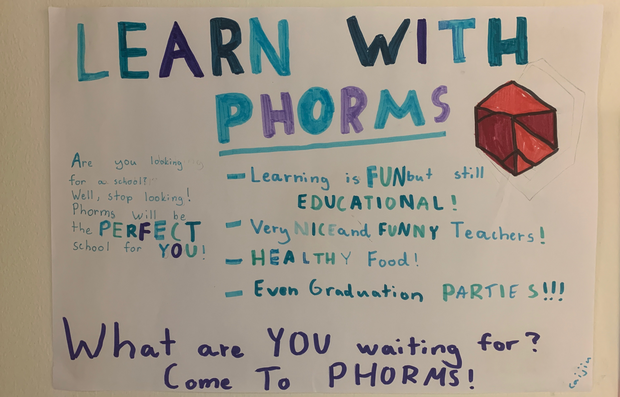 LEARN WITH
PHORMS
Are you looking
for a school?
Well, stop looking!
Phorms will be
the PERFECT
school for YOU!
- Learning is FUN but still
EDUCATIONAL!
- Very NICE and FUNNY Teachers!
- HEALTHY Food!
- Even Graduation PARTIES!!!
What are YOU waiting for?
Come To PHORMS!